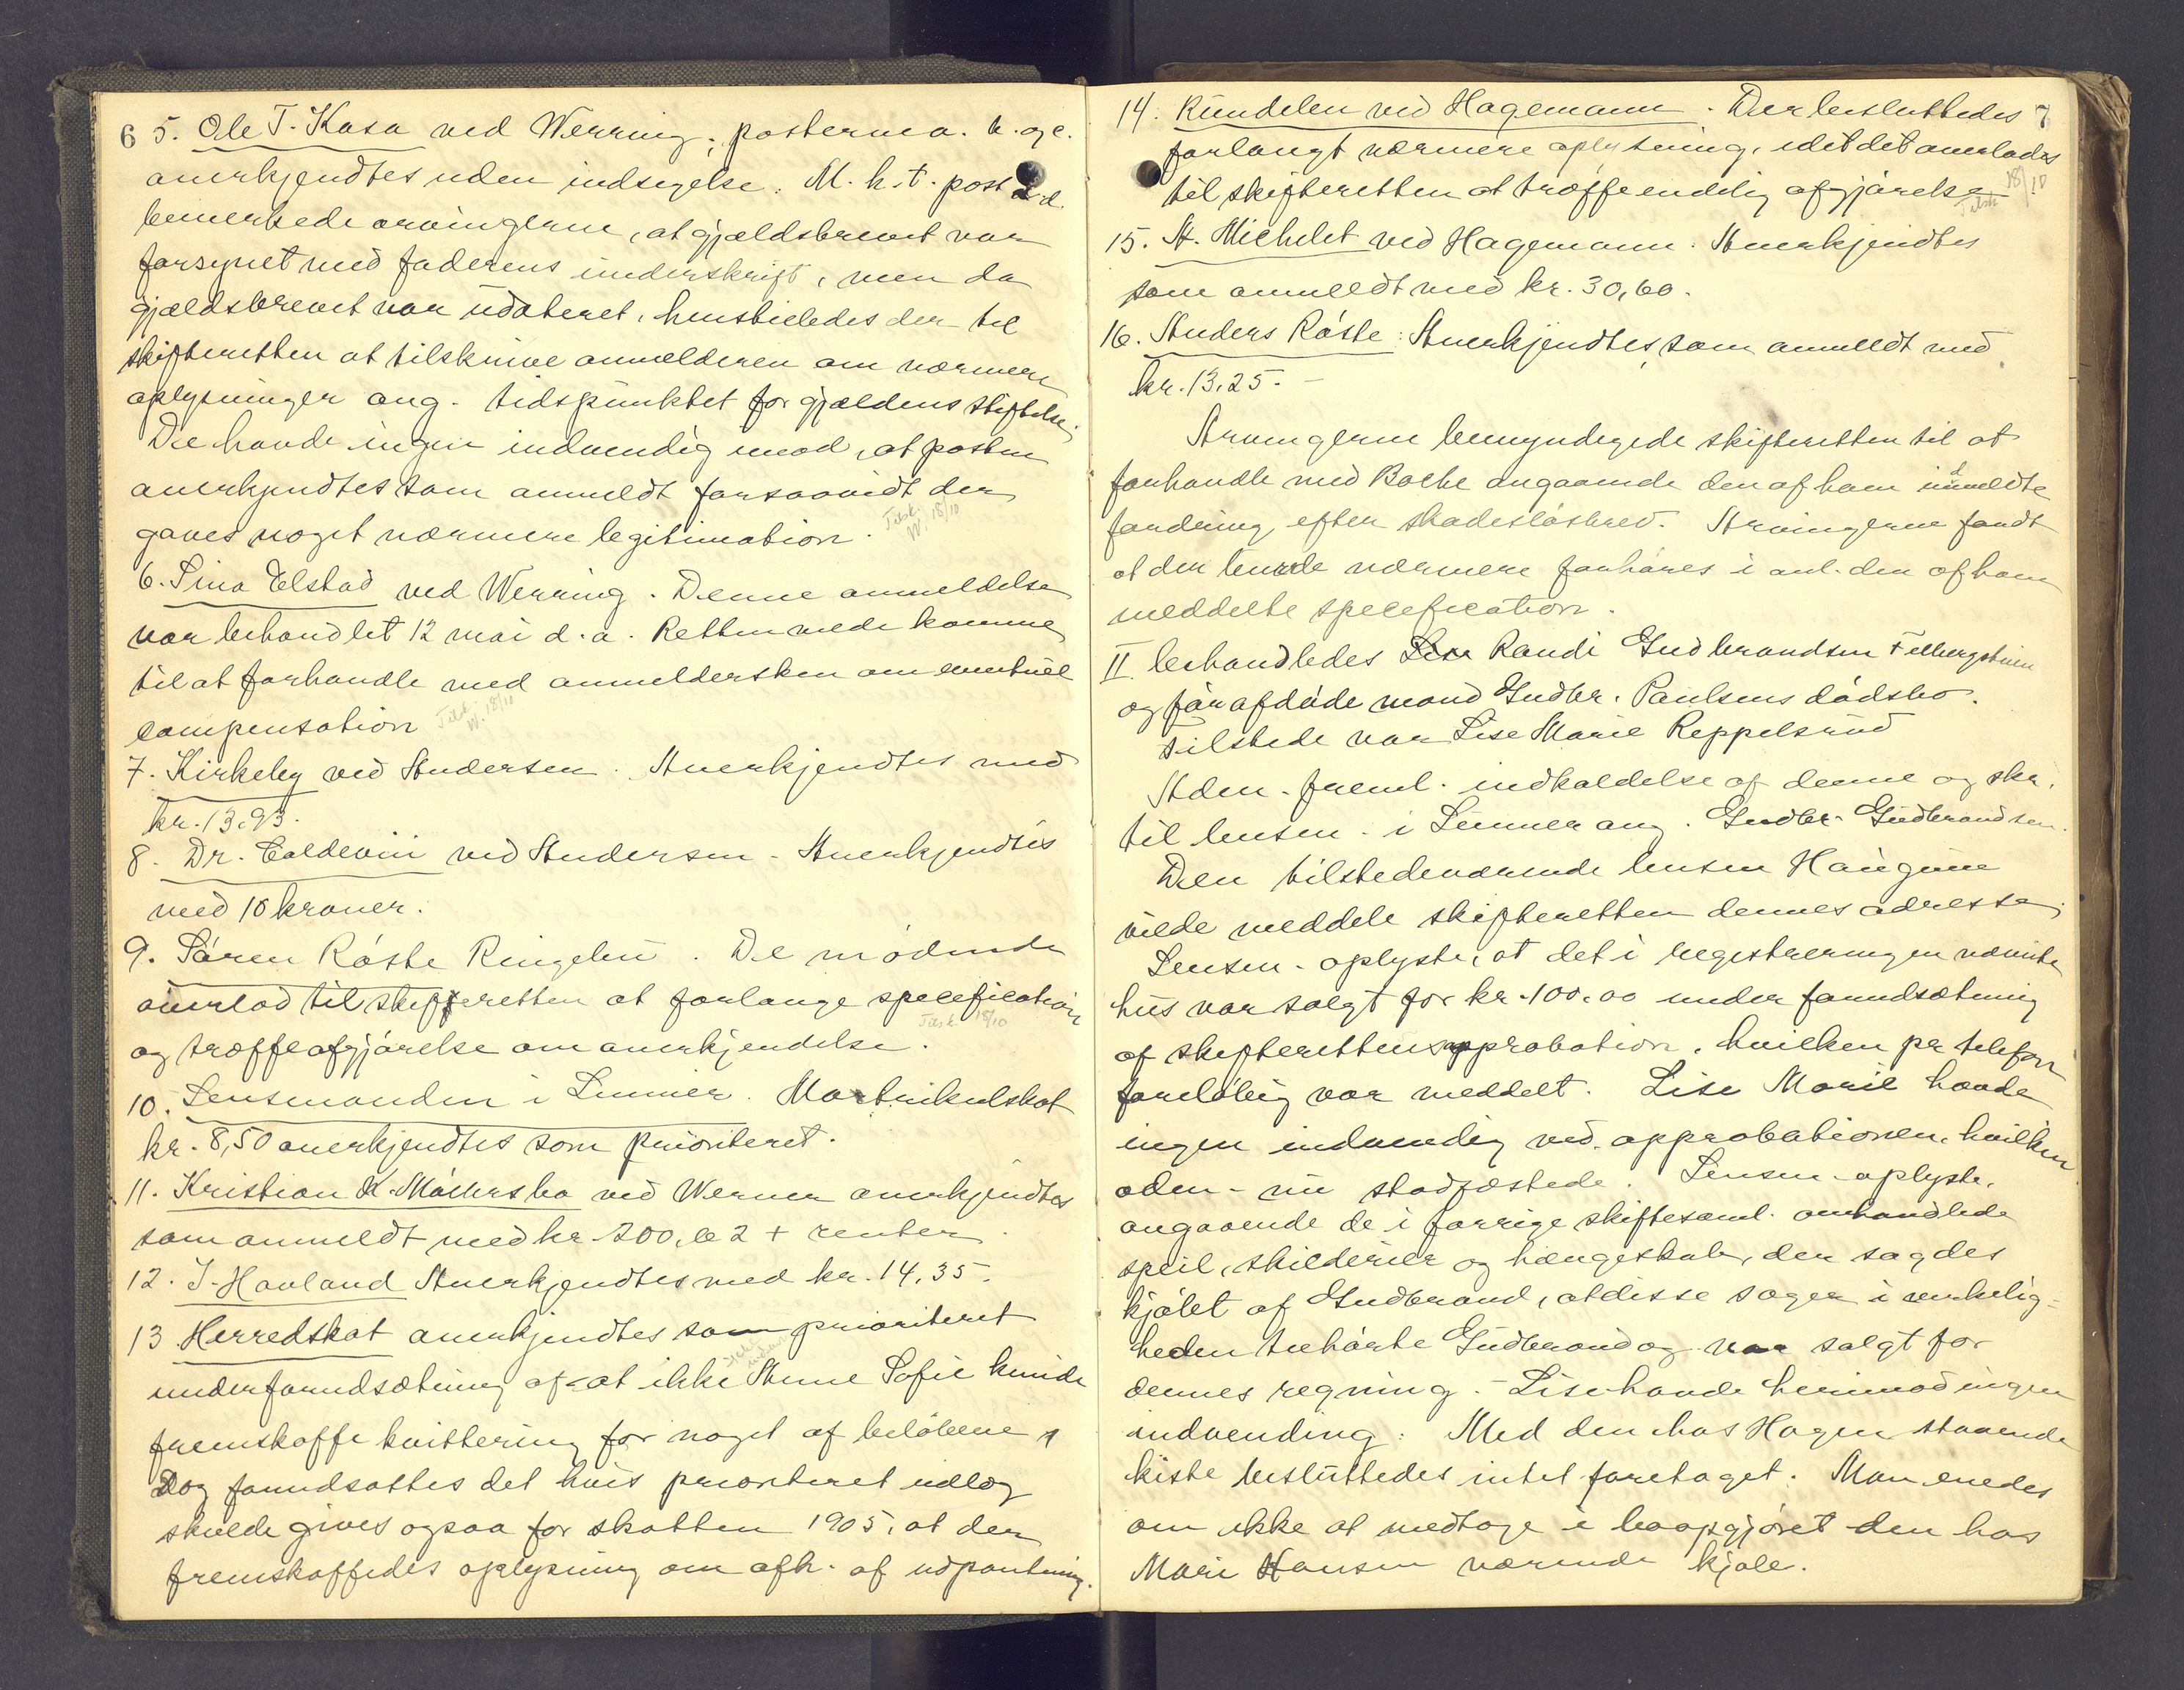 6 5. Ole T. Kasa ved Werring; posterne a. b. og c.
anerkjendtes uden indsigelse. M. h. t. post d.
bemerkede arvingerne, at gjældsbrevet var
forsynet med faderens underskrift, men da
gjældsbrevet var udateret, henstilledes der til
skifteretten at tilskrive anmelderen om nærmere
oplysninger ang. tidspunktet for gjældens stiftelse.
De havde ingen indvendig imod, at posten
anerkjendtes som anmeldt forsaavidt der
gaves noget nærmere legitimation.
Tilsk. W. 18/10
6. Sina Elstad ved Werring. Denne anmeldelse
var behandlet 12 mai d. a. Retten vilde komme
til at forhandle med anmeldersken om eventuel
compensation
Tilsk. W. 18/10
7. Kirkeby ved Andersen. Anerkjendtes med
kr. 13.93.
8. Dr. Coldevin ved Andersen. Anerkjendtes
med 10 kroner.
9. Søren Røste Ringelien. De mødende
overlod til skifteretten at forlange specification
Tilsk. 18/10
og træffe afgjørelse om anerkjendelse.
10. Lensmanden i Lunner. Matrikulskat
kr. 8,50 anerkjendtes som prioriteret.
11. Kristian K. Møllers bo ved Werner anerkjendtes
som anmeldt med kr. 200, 2 + renter
12. J. Hovland Anerkjendtes med kr. 14,35.
13 Herredskat anerkjendtes som prioriteret
under forudsætning af at ikke Anne Sofie kunde
fremskaffe kvittering for noget af beløbene
Dog forudsattes det hvis prioriteret udlæg
skulde gives ogsaa for skatten 1905, at der
fremskaffedes oplysning om afh. af udpantning.
14. Rundelen ved Hagemann. Der besluttedes 7
forlangt nærmere oplysning, idet det overlodes
til skifteretten at træffe endelig afgjørelse
Tilsk. 18/10
15. A. Michelet ved Hagemann. Anerkjendtes
som anmeldt med kr. 30,60.
16. Anders Røste: Anerkjendtes som anmeldt med
kr. 13.25. –
Arvingerne bemyndigede skifteretten til at
forhandle med Bache angaaende den af ham anmeldte
fordring efter skadesløsbrev. Arvingerne fandt
at der burde nærmere forhøres i anl. den af ham
meddelte specification.
II. behandledes Randi Gudbrandsen
og før afdøde mand Gudbr. Paulsens dødsbo.
Tilstede var Lise Marie Reppelsrud
Adm. freml. indkaldelse af denne og skr.
til lensm. i Lunner ang. Gudbr. Gudbrandsen.
Den tilstedeværende lensm Haugene
vilde meddele skifteretten dennes adresse.
Lensm. oplyste, at det i registreringen nævnte
hus var solgt for kr. 100.00 under forudsætning
af skifterettens approbation, hvilken pr telefon
foreløbig var meddelt. Lise Marie havde
ingen indvendig ved approbationen, hvilken
adm. nu stadfæstede. Lensm. oplyste,
angaaende de i forrige skiftesaml. omhandlede
speil, skilderier og hængeskab, der sagdes
kjøbt af Gudbrand, at disse sager i virkelig=
heden tilhørte Gudbrand og var solgt for
dennes regning. – Lise havde herimod ingen
indvending. Med den hos Hagen staaende
kiste besluttedes intet foretaget. Man enedes
om ikke at medtage i boopgjøret den hos
Mari Hansen værende kjole.